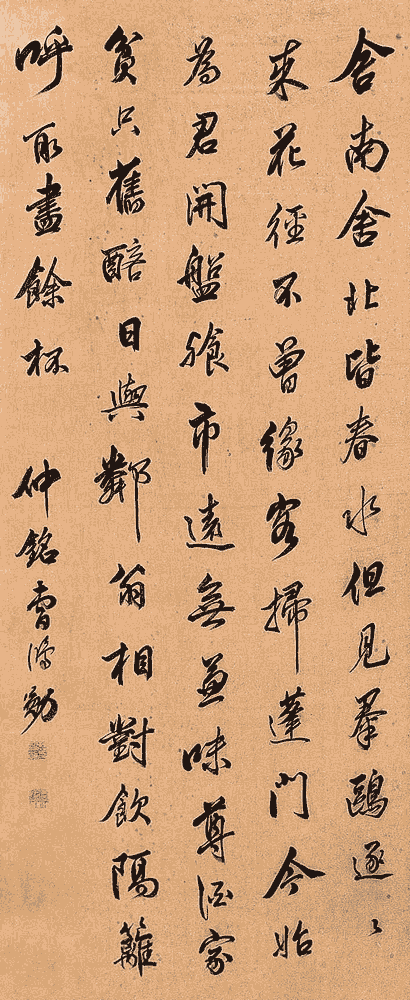 舍南舍北皆春水但見羣鷗逐〻
來花徑不曾緣客掃蓬門今始
為君開盤飱市遠無兼味尊酒家
貧只舊醅日與鄰翁相對飲隔籬
呼取盡餘杯
仲銘曹鴻勛